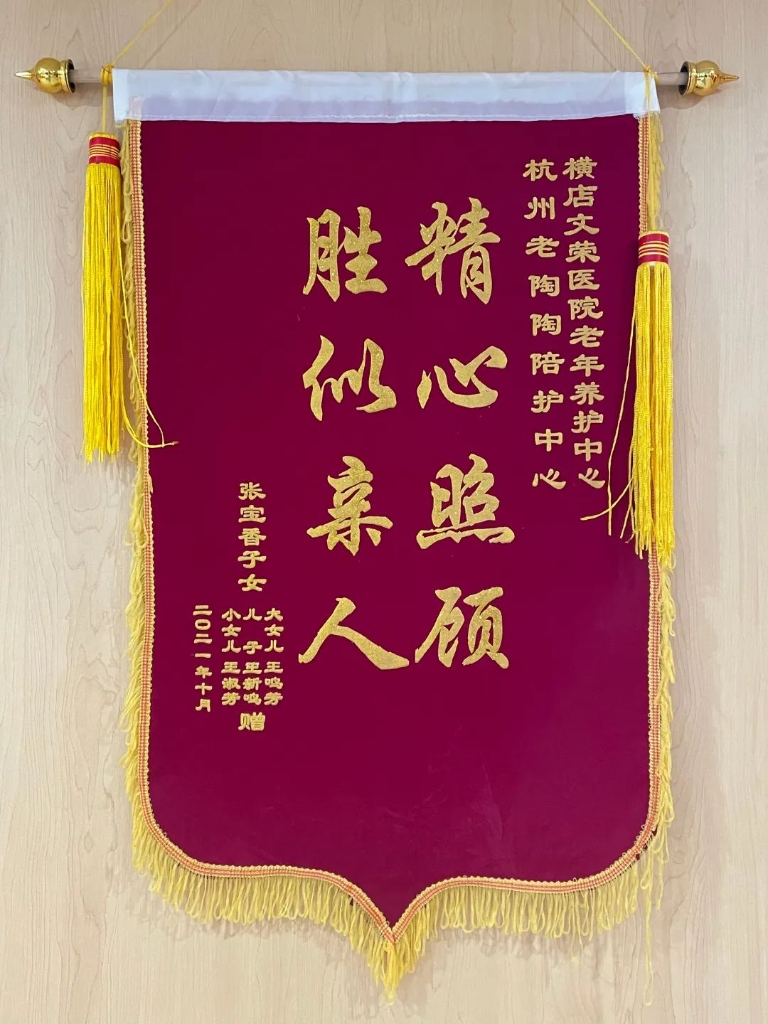 横店文荣医院老年养护中心
杭州老陶陶陪护中心
精心照顾
胜似亲人
张宝香子女
大女儿王鸣芳
儿子王新鸣
小女儿王淑芳
赠
二〇二一年十月